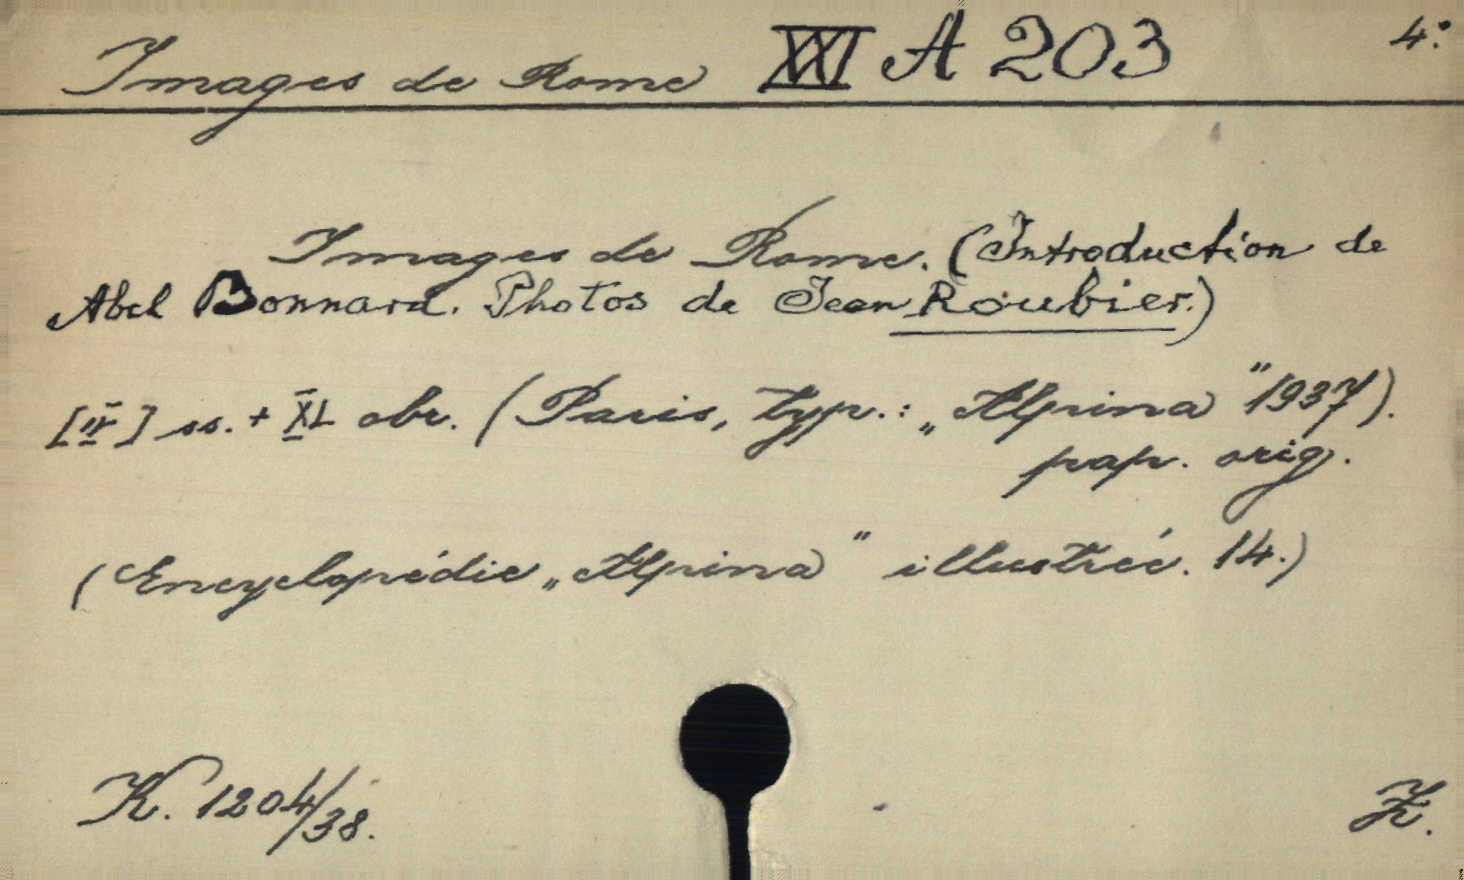 Images de Rome XXI A 203 4:
Images de Rome. (Introduction de
Abel Bonnard. Photos de Jean Roubier.)
[IV] ss. + XL obr. (Paris, typ.: „Alpina" 1937).
pap. orig.
(Encyclopédie „Alpina" illustrée. 14.)
K. 1204/38.